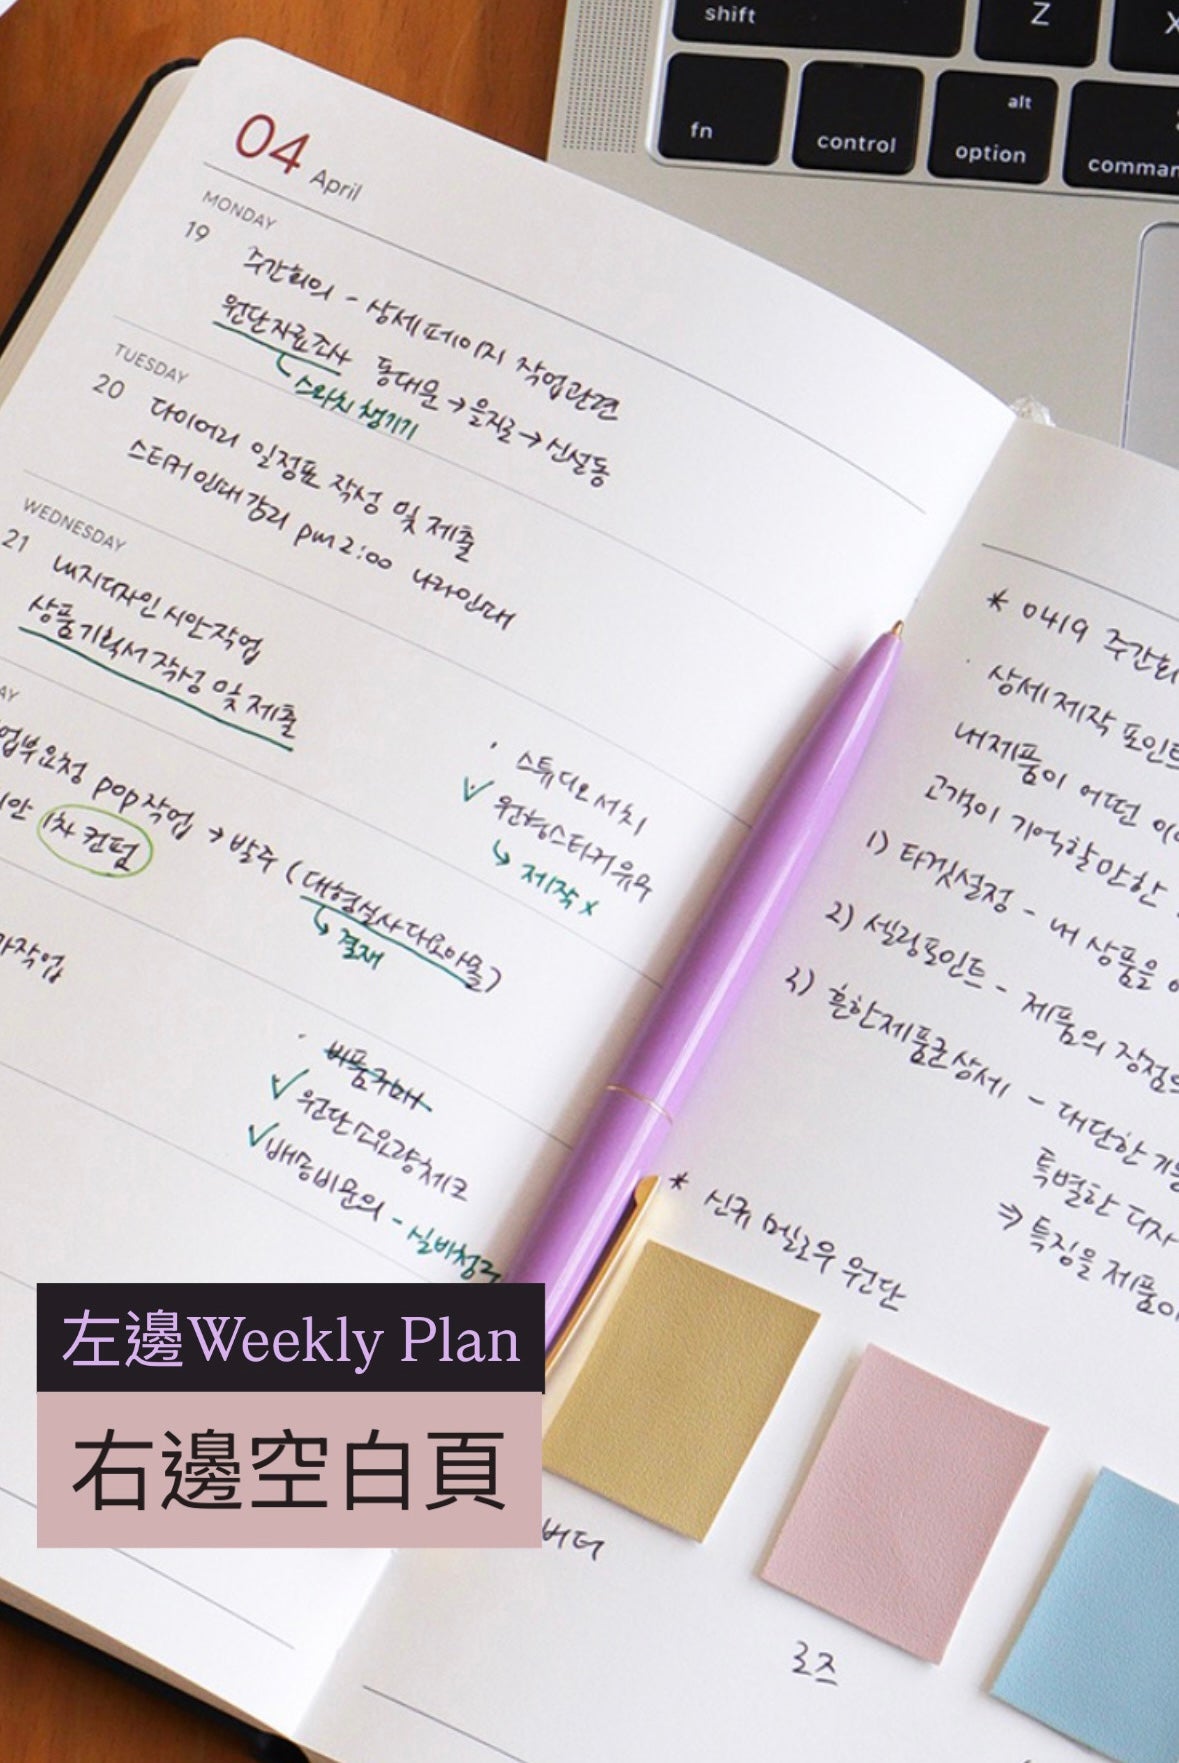 shift
Z
X
fn
control
alt
option
04 April
MONDAY
19 주간회의 - 상세페이지 작업관련
원단자료조사 동대문 → 을지로 → 신설동
↳ 스와치 챙기기
TUESDAY
20 다이어리 일정표 작성 및 제출
스티커 인쇄감리 pm 2:00 나라인쇄
WEDNESDAY
21 내지디자인 시안작업
상품기획서 작성 및 제출
업부요청 pop 작업 → 발주 (대형실사다모아몰)
↳ 결재
1차 컨펌
· 스튜디오 서치
✓ 원형스티커 유무
↳ 제작 x
· 비품구매
✓ 원단소요량체크
✓ 배송비문의 - 실비청구
* 0419 주간회
· 상세제작 포인트
내제품이 어떤
고객이 기억할만한
1) 타겟설정 - 내 상품을
2) 셀링포인트 - 제품의 장점
3) 흔한제품군상세 - 대단한 기능
특별한 디자
⇒ 특징을 제품
* 신규 멜로우 원단
버터
로즈
左邊Weekly Plan
右邊空白頁